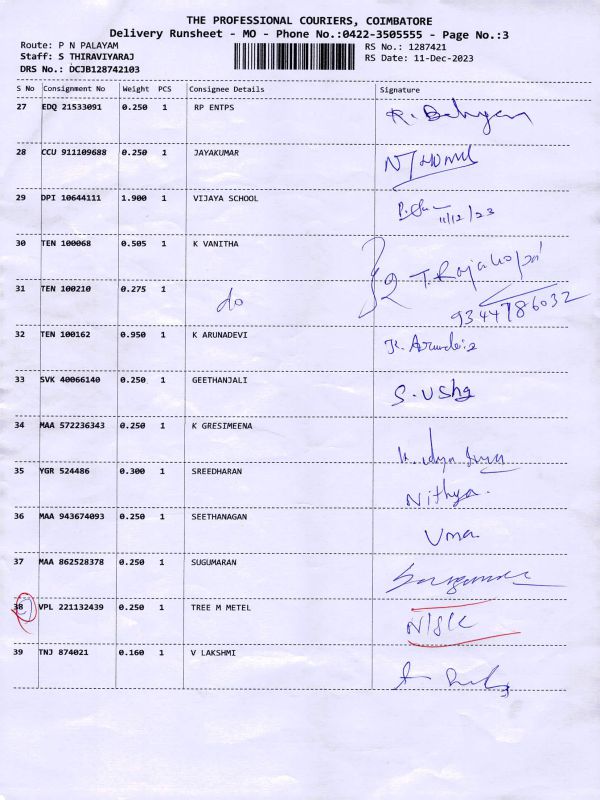 THE PROFESSIONAL COURIERS, COIMBATORE
Delivery Runsheet - MO - Phone No.:0422-3505555 - Page No.:3
Route: P N PALAYAM
Staff: S THIRAVIYARAJ
DRS No.: DCJB128742103
RS No.: 1287421
RS Date: 11-Dec-2023
S No Consignment No Weight PCS Consignee Details Signature
27 EDQ 21533091 0.250 1 RP ENTPS
28 CCU 911109688 0.250 1 JAYAKUMAR
29 DPI 10644111 1.900 1 VIJAYA SCHOOL 11/12/23
30 TEN 100068 0.505 1 K VANITHA
31 TEN 100210 0.275 1 do 2 T. Rajagopal
9344786032
32 TEN 100162 0.950 1 K ARUNADEVI
33 SVK 40066140 0.250 1 GEETHANJALI S. Usha
34 MAA 572236343 0.250 1 K GRESIMEENA
35 YGR 524486 0.300 1 SREEDHARAN Nithya.
36 MAA 943674093 0.250 1 SEETHANAGAN Uma
37 MAA 862528378 0.250 1 SUGUMARAN
38 VPL 221132439 0.250 1 TREE M METEL N/S/C
39 TNJ 874021 0.160 1 V LAKSHMI